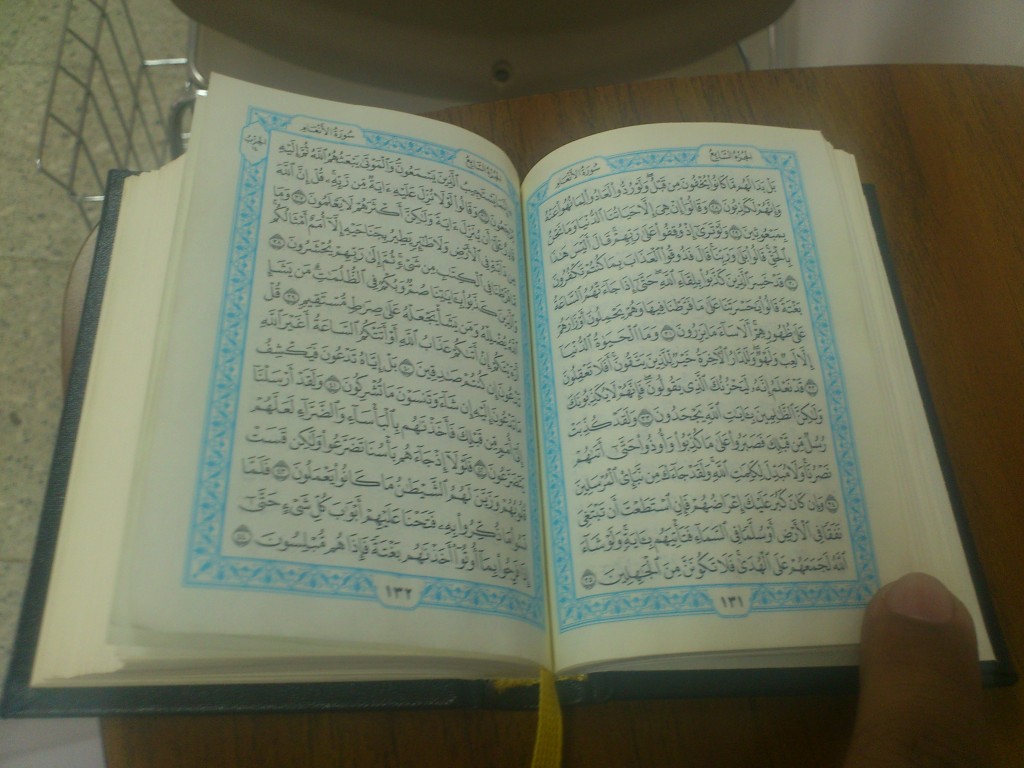 سُورَةُ الأَنْعَامِ
الجُزْءُ السَّابِعُ
بَلْ بَدَا لَهُم مَّا كَانُوا۟ يُخْفُونَ مِن قَبْلُ وَلَوْ رُدُّوا۟ لَعَادُوا۟ لِمَا نُهُوا۟ عَنْهُ
وَإِنَّهُمْ لَكَـٰذِبُونَ ٢٨ وَقَالُوٓا۟ إِنْ هِىَ إِلَّا حَيَاتُنَا ٱلدُّنْيَا وَمَا نَحْنُ
بِمَبْعُوثِينَ ٢٩ وَلَوْ تَرَىٰٓ إِذْ وُقِفُوا۟ عَلَىٰ رَبِّهِمْ قَالَ أَلَيْسَ هَـٰذَا
بِٱلْحَقِّ قَالُوا۟ بَلَىٰ وَرَبِّنَا قَالَ فَذُوقُوا۟ ٱلْعَذَابَ بِمَا كُنتُمْ تَكْفُرُونَ
٣٠ قَدْ خَسِرَ ٱلَّذِينَ كَذَّبُوا۟ بِلِقَآءِ ٱللَّهِ حَتَّىٰٓ إِذَا جَآءَتْهُمُ ٱلسَّاعَةُ
بَغْتَةً قَالُوا۟ يَـٰحَسْرَتَنَا عَلَىٰ مَا فَرَّطْنَا فِيهَا وَهُمْ يَحْمِلُونَ أَوْزَارَهُمْ
عَلَىٰ ظُهُورِهِمْ أَلَا سَآءَ مَا يَزِرُونَ ٣١ وَمَا ٱلْحَيَوٰةُ ٱلدُّنْيَآ
إِلَّا لَعِبٌ وَلَهْوٌ وَلَلدَّارُ ٱلْـَٔاخِرَةُ خَيْرٌ لِّلَّذِينَ يَتَّقُونَ أَفَلَا تَعْقِلُونَ
٣٢ قَدْ نَعْلَمُ إِنَّهُۥ لَيَحْزُنُكَ ٱلَّذِى يَقُولُونَ فَإِنَّهُمْ لَا يُكَذِّبُونَكَ
وَلَـٰكِنَّ ٱلظَّـٰلِمِينَ بِـَٔايَـٰتِ ٱللَّهِ يَجْحَدُونَ ٣٣ وَلَقَدْ كُذِّبَتْ
رُسُلٌ مِّن قَبْلِكَ فَصَبَرُوا۟ عَلَىٰ مَا كُذِّبُوا۟ وَأُوذُوا۟ حَتَّىٰٓ أَتَىٰهُمْ
نَصْرُنَا وَلَا مُبَدِّلَ لِكَلِمَـٰتِ ٱللَّهِ وَلَقَدْ جَآءَكَ مِن نَّبَإِى۟ ٱلْمُرْسَلِينَ
٣٤ وَإِن كَانَ كَبُرَ عَلَيْكَ إِعْرَاضُهُمْ فَإِنِ ٱسْتَطَعْتَ أَن تَبْتَغِىَ
نَفَقًا فِى ٱلْأَرْضِ أَوْ سُلَّمًا فِى ٱلسَّمَآءِ فَتَأْتِيَهُم بِـَٔايَةٍ وَلَوْ شَآءَ
ٱللَّهُ لَجَمَعَهُمْ عَلَى ٱلْهُدَىٰ فَلَا تَكُونَنَّ مِنَ ٱلْجَـٰهِلِينَ ٣٥
١٣١
الجُزْءُ السَّابِعُ
سُورَةُ الأَنْعَامِ
إِنَّمَا يَسْتَجِيبُ ٱلَّذِينَ يَسْمَعُونَ وَٱلْمَوْتَىٰ يَبْعَثُهُمُ ٱللَّهُ ثُمَّ إِلَيْهِ
يُرْجَعُونَ ٣٦ وَقَالُوا۟ لَوْلَا نُزِّلَ عَلَيْهِ ءَايَةٌ مِّن رَّبِّهِۦ قُلْ إِنَّ ٱللَّهَ
قَادِرٌ عَلَىٰٓ أَن يُنَزِّلَ ءَايَةً وَلَـٰكِنَّ أَكْثَرَهُمْ لَا يَعْلَمُونَ ٣٧ وَمَا
مِن دَآبَّةٍ فِى ٱلْأَرْضِ وَلَا طَـٰٓئِرٍ يَطِيرُ بِجَنَاحَيْهِ إِلَّآ أُمَمٌ أَمْثَالُكُم
مَّا فَرَّطْنَا فِى ٱلْكِتَـٰبِ مِن شَىْءٍ ثُمَّ إِلَىٰ رَبِّهِمْ يُحْشَرُونَ ٣٨
وَٱلَّذِينَ كَذَّبُوا۟ بِـَٔايَـٰتِنَا صُمٌّ وَبُكْمٌ فِى ٱلظُّلُمَـٰتِ مَن يَشَإِ
ٱللَّهُ يُضْلِلْهُ وَمَن يَشَأْ يَجْعَلْهُ عَلَىٰ صِرَٰطٍ مُّسْتَقِيمٍ ٣٩ قُلْ
أَرَءَيْتَكُمْ إِنْ أَتَىٰكُمْ عَذَابُ ٱللَّهِ أَوْ أَتَتْكُمُ ٱلسَّاعَةُ أَغَيْرَ ٱللَّهِ
تَدْعُونَ إِن كُنتُمْ صَـٰدِقِينَ ٤٠ بَلْ إِيَّاهُ تَدْعُونَ فَيَكْشِفُ
مَا تَدْعُونَ إِلَيْهِ إِن شَآءَ وَتَنسَوْنَ مَا تُشْرِكُونَ ٤١ وَلَقَدْ أَرْسَلْنَآ
إِلَىٰٓ أُمَمٍ مِّن قَبْلِكَ فَأَخَذْنَـٰهُم بِٱلْبَأْسَآءِ وَٱلضَّرَّآءِ لَعَلَّهُمْ
يَتَضَرَّعُونَ ٤٢ فَلَوْلَآ إِذْ جَآءَهُم بَأْسُنَا تَضَرَّعُوا۟ وَلَـٰكِن قَسَتْ
قُلُوبُهُمْ وَزَيَّنَ لَهُمُ ٱلشَّيْطَـٰنُ مَا كَانُوا۟ يَعْمَلُونَ ٤٣ فَلَمَّا
نَسُوا۟ مَا ذُكِّرُوا۟ بِهِۦ فَتَحْنَا عَلَيْهِمْ أَبْوَٰبَ كُلِّ شَىْءٍ حَتَّىٰٓ
إِذَا فَرِحُوا۟ بِمَآ أُوتُوٓا۟ أَخَذْنَـٰهُم بَغْتَةً فَإِذَا هُم مُّبْلِسُونَ ٤٤
١٣٢